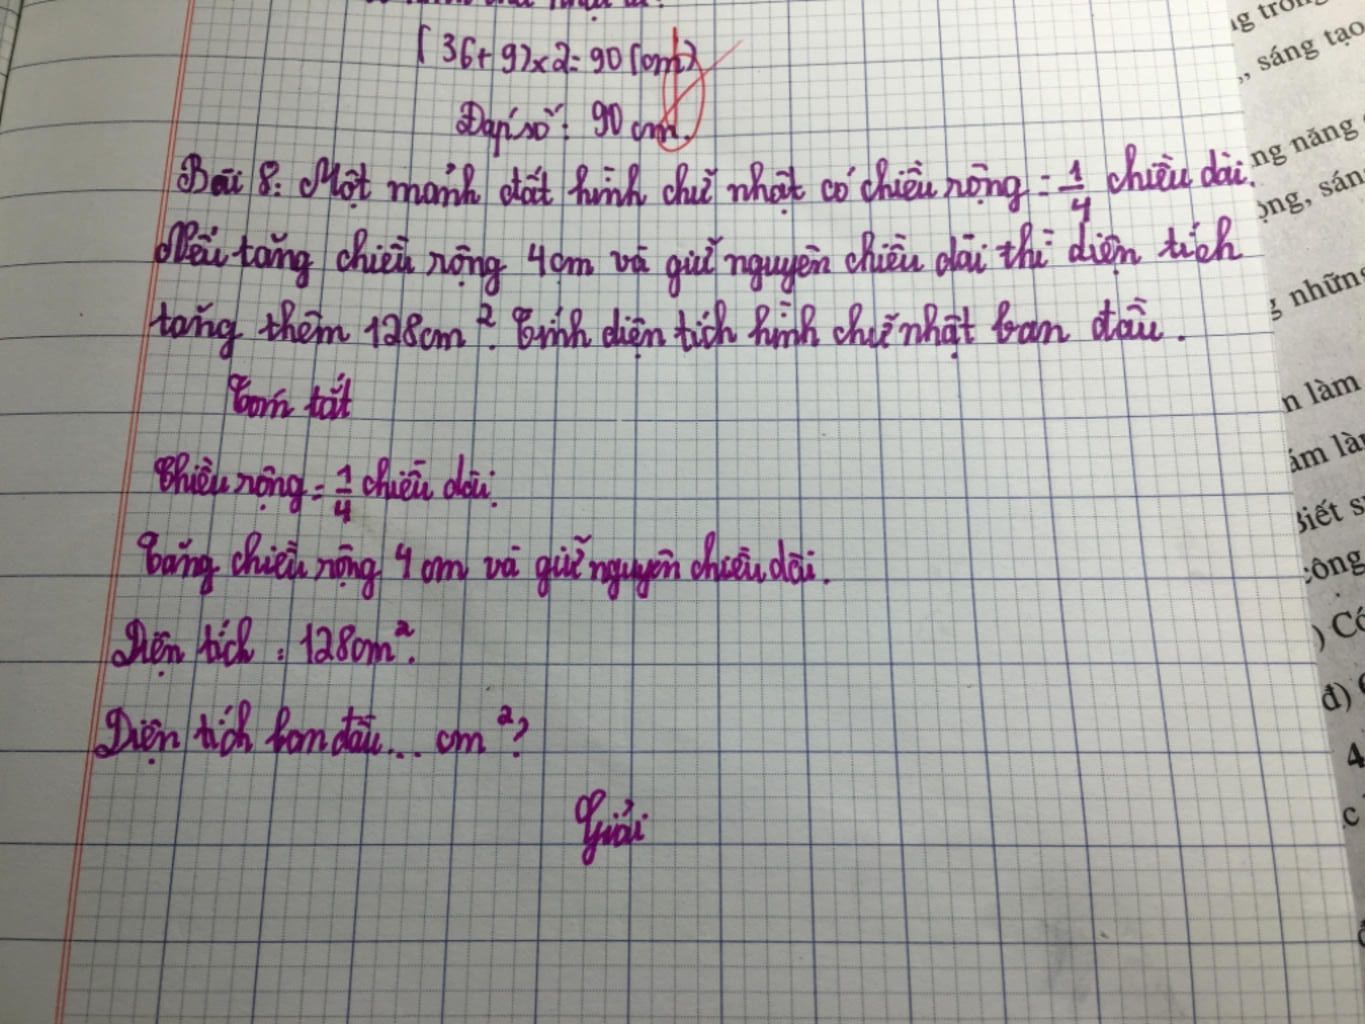 (36+9)x2=90(cm)
Đáp số: 90 cm.
Bài 8: Một mảnh đất hình chữ nhật có chiều rộng = 1/4 chiều dài.
Nếu tăng chiều rộng 4cm và giữ nguyên chiều dài thì diện tích
tăng thêm 128cm². Tính diện tích hình chữ nhật ban đầu.
Tóm tắt
Chiều rộng = 1/4 chiều dài.
Tăng chiều rộng 4 cm và giữ nguyên chiều dài.
Diện tích : 128cm².
Diện tích ban đầu... cm²?
Giải
sáng tạo
ng năng
ộng, sán
những
n làm
ám là
Biết s
công
) Có
đ)
4